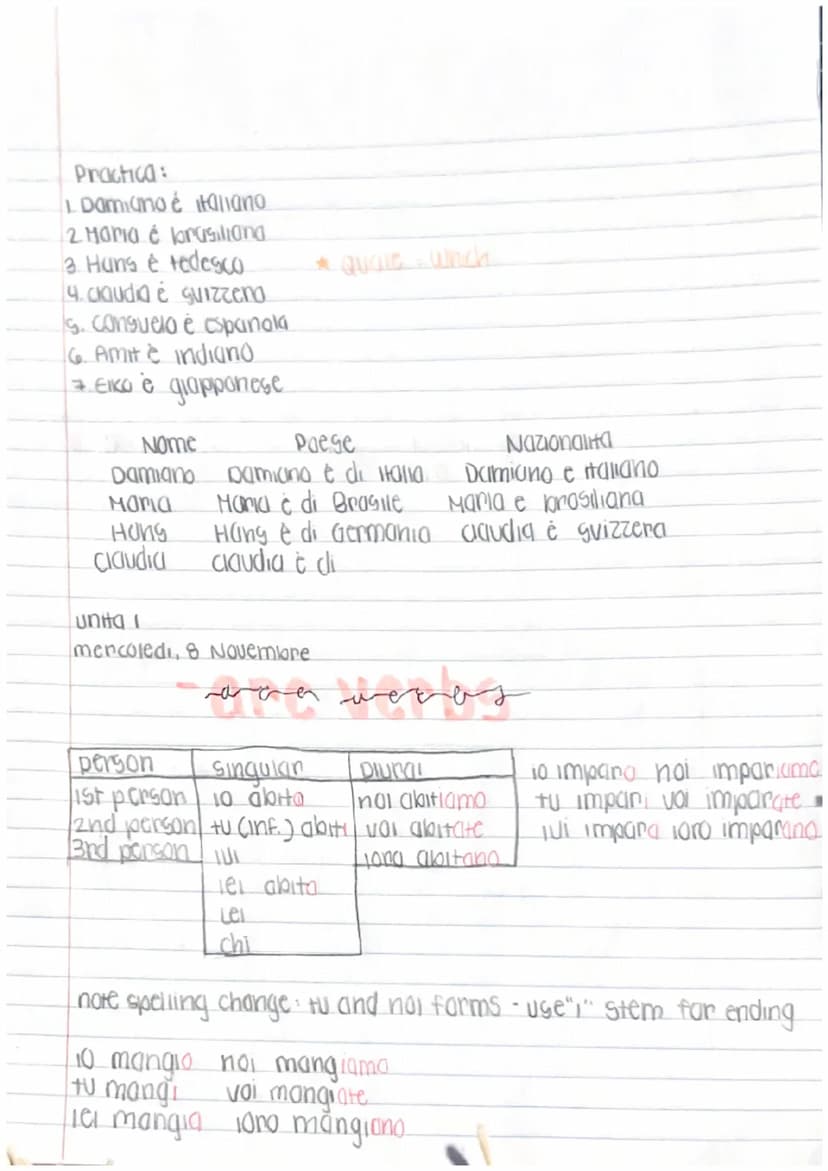 Practica:
1. Damiano è italiano
2. Maria è brasiliana
3. Hans è tedesco
* quale = which
4. Claudia è svizzera
5. Consuelo è espanola
6. Amit è indiano
7. Eiko è giapponese
Nome Paese Nazionalità
Damiano Damiano è di Italia Damiano è italiano
Maria Maria è di Brasile Maria è brasiliana
Hans Hans è di Germania Claudia è svizzera
Claudia Claudia è di
unità 1
mercoledì, 8 Novembre
-are verbs
-are verbs
person singular plural
1st person io abito noi abitiamo
2nd person tu (inf.) abiti voi abitate
3rd person lui loro abitano
lei abita
Lei
chi
io imparo noi impariamo
tu impari voi imparate
lui impara loro imparano
note spelling change: tu and noi forms - use "i" stem for ending
io mangio noi mangiamo
tu mangi voi mangiate
lei mangia loro mangiano